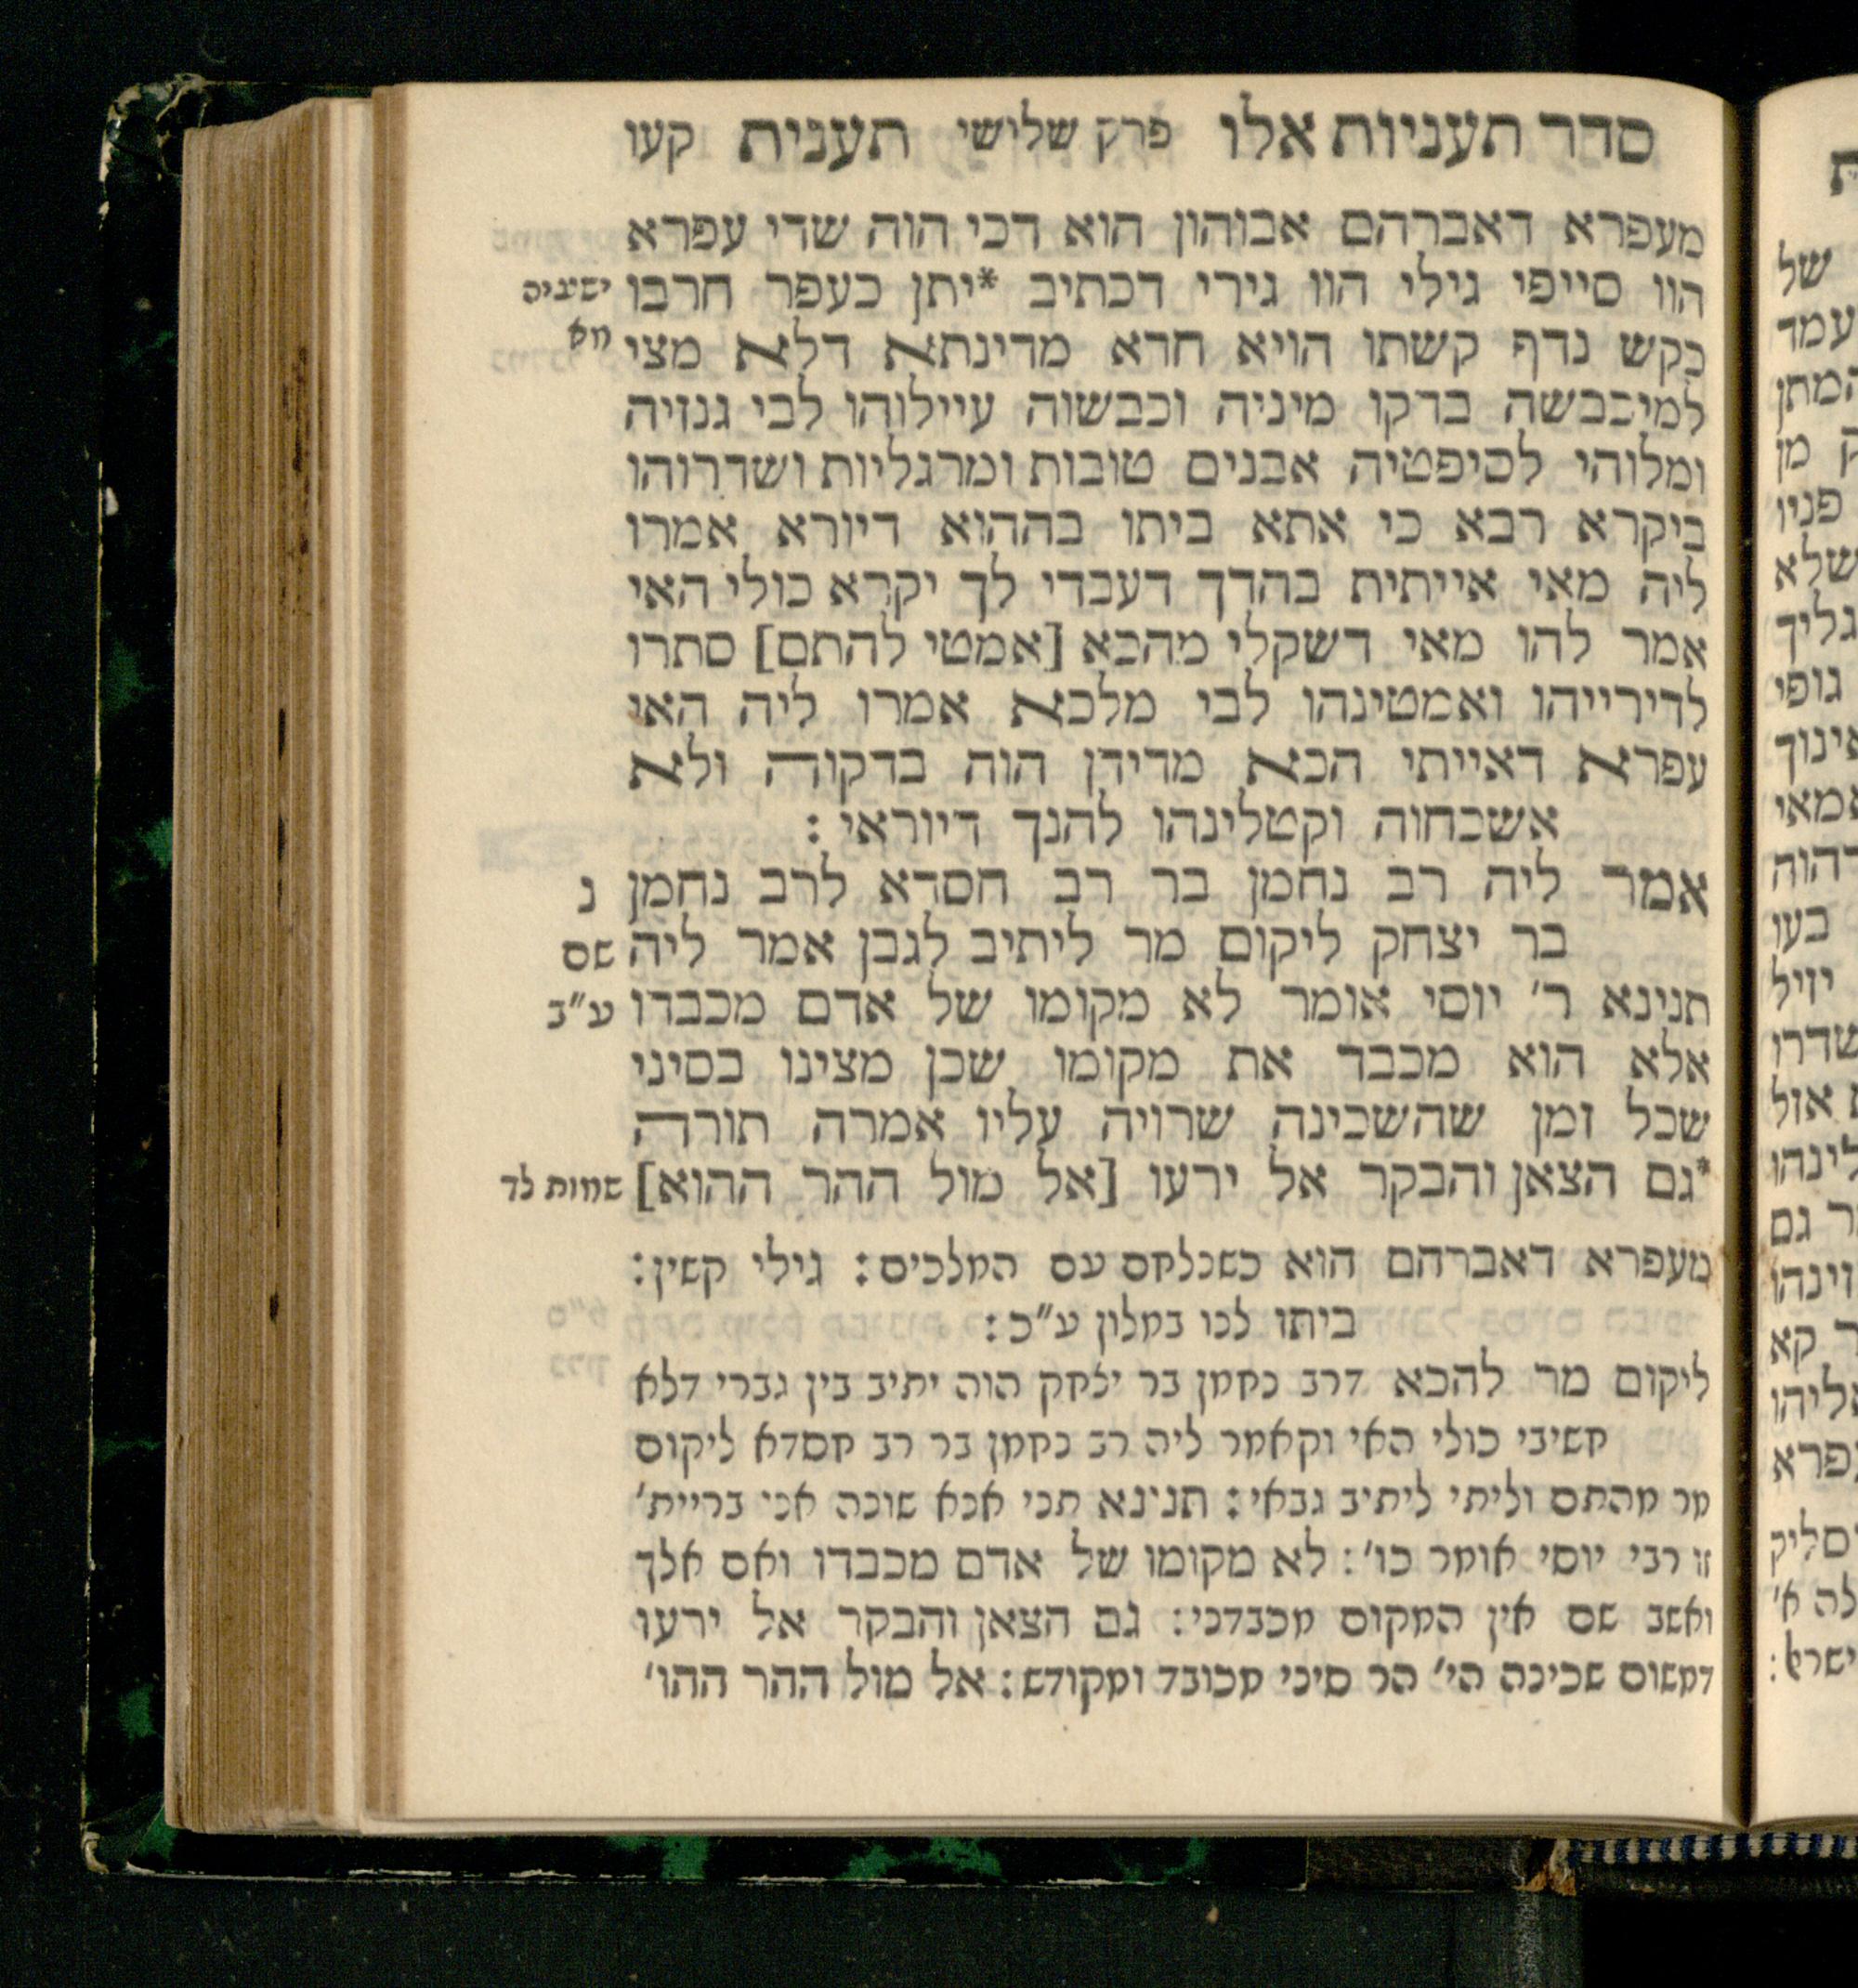 סדר תעניות אלו פרק שלישי תענית קעו
מעפרא דאברהם אבוהון הוא דכי הוה שדי עפרא
הוו סייפי גילי הוו גירי דכתיב *יתן כעפר חרבו ישעיה
כקש נדף קשתו הויא חדא מדינתא דלא מצי מא
למיכבשה בדקו מיניה וכבשוה עיילוהו לבי גנזיה
ומלוהי לסיפטיה אבנים טובות ומרגליות ושדרוהו
ביקרא רבא כי אתא ביתו בההוא דיורא אמרו
ליה מאי אייתית בהדך דעבדי לך יקרא כולי האי
אמר להו מאי דשקלי מהכא [אמטי להתם] סתרו
לדירייהו ואמטינהו לבי מלכא אמרו ליה האי
עפרא דאייתי הכא מדידן הוה בדקוה ולא
אשכחוה וקטלינהו להנך דיוראי :
אמר ליה רב נחמן בר רב חסדא לרב נחמן נ
בר יצחק ליקום מר ליתיב לגבן אמר ליה שם
תנינא ר׳ יוסי אומר לא מקומו של אדם מכבדו ע״ב
אלא הוא מכבד את מקומו שכן מצינו בסיני
שכל זמן שהשכינה שרויה עליו אמרה תורה
*גם הצאן והבקר אל ירעו [אל מול ההר ההוא] שמות לד
מעפרא דאברהם הוא כשנלחם עם המלכים: גילי קשין:
ביתו לנו במלון ע״כ:
ליקום מר להכא דרב נחמן בר יצחק הוה יתיב בין גברי דלא
חשיבי כולי האי וקאמר ליה רב נחמן בר רב חסדא ליקום
מר מהתם וליתי ליתיב גבאי: תנינא תני אנא שונה אני בריית׳
זו רבי יוסי אומר כו׳: לא מקומו של אדם מכבדו ואם אלך
ואשב שם אין המקום מכבדני: גם הצאן והבקר אל ירעו
דמשום שכינה הי׳ הר סיני מכובד ומקודש: אל מול ההר ההו׳